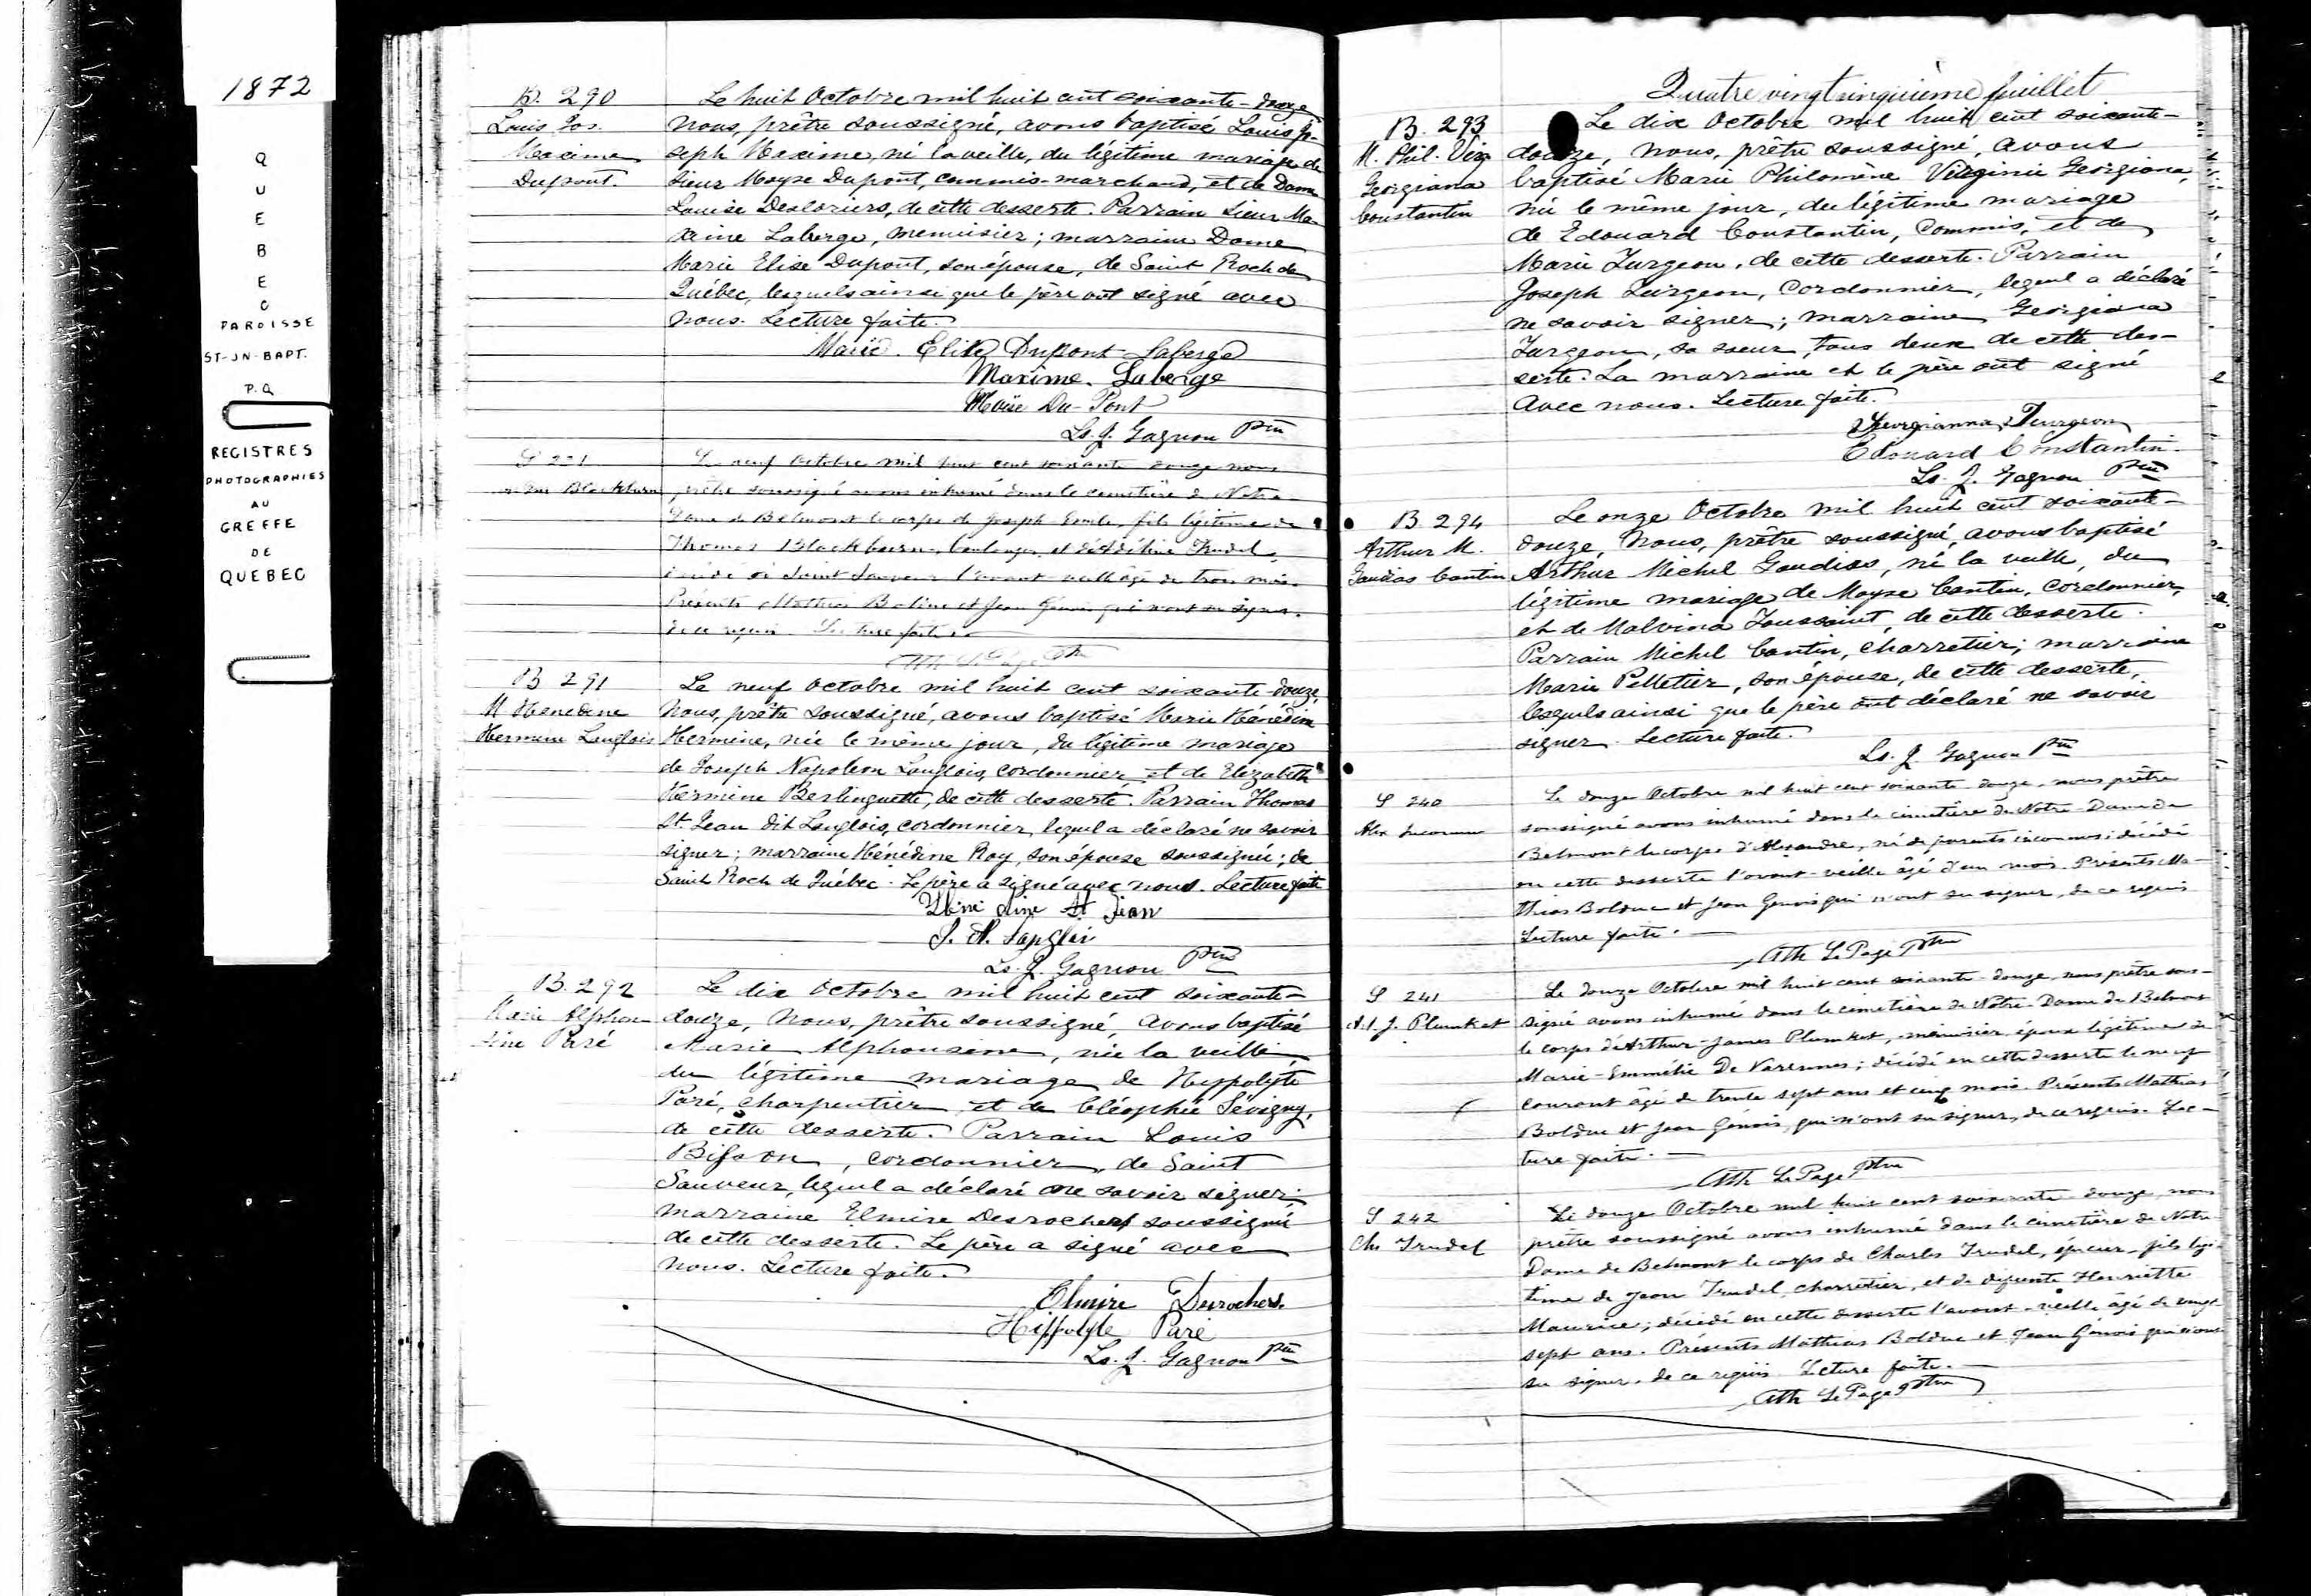 1872
QUEBEC
PAROISSE
ST-JN-BAPT.
P.Q
REGISTRES
PHOTOGRAPHIES
AU
GREFFE
DE
QUEBEC
B. 290
Louis Jos.
Maxime
Dupont.
Le huit Octobre mil huit cent soixante-douze
nous, prêtre soussigné, avons baptisé Louis Jo-
seph Maxime, né la veille, du légitime mariage de
Sieur Moyse Dupont, commis-marchand, et de Dame
Louise Desloriers, de cette desserte. Parrain Sieur Ma
xime Laberge, menuisier; marraine Dame
Marie Elise Dupont, son épouse, de Saint Roch de
Québec, lesquels ainsi que le père ont signé avec
nous. Lecture faite.
Marie. Elise Dupont Laberge
Maxime. Laberge
Moïse Du-Pont
Ls. J. Gagnon Ptre
Blackburn
Le neuf Octobre mil huit cent soixante douze nous
prêtre soussigné avons inhumé dans le cimetière de Notre
Dame de Belmont le corps de Joseph Emile, fils légitime de
Thomas Blackburn, boulanger, et d'Adéline Trudel,
décédé à Saint Sauveur l'avant veille âgé de trois mois.
Présents Mathias Bolduc et Jean Génois qui n'ont su signer.
de ce requis. Lecture faite.
B 291
M Hénédine
Hermine Langlois
Le neuf Octobre mil huit cent soixante-douze,
Nous, prêtre soussigné, avons baptisé Marie Hénédine
Hermine, née le même jour, du légitime mariage
de Joseph Napoleon Langlois, cordonnier et de Elizabeth
Hermine Berlinguette, de cette desserte. Parrain Thomas
St. Jean dit Langlois, cordonnier, lequel a déclaré ne savoir
signer; marraine Hénédine Roy, son épouse soussignée; de
Saint Roch de Québec. Le père a signé avec nous. Lecture faite
Héné dine St Jean
J. N. Langlois
Ls. J. Gagnon Ptre
B. 292
Marie Alphon
sine Paré
Le dix Octobre mil huit cent soixante-
douze, Nous, prêtre soussigné, avons baptisé
Marie Alphonsine, née la veille,
du légitime mariage de Hyppolyte
Paré, charpentier et de Cléophée Sévigny,
de cette desserte. Parrain Louis
Bisson, cordonnier, de Saint
Sauveur, lequel a déclaré ne savoir signer;
marraine Elmire Desrochers soussignée
de cette desserte. Le père a signé avec
nous. Lecture faite.
Elmire Desrochers.
Hippolyte Paré
Ls. J. Gagnon Ptre
Quatre vingt cinquième feuillet
B. 293
M. Phil. Virg
Georgiana
Constantin
Le dix Octobre mil huit cent soixante-
douze, nous, prêtre soussigné, avons
baptisé Marie Philomène Virginie Georgiana,
née le même jour, du légitime mariage
de Edouard Constantin, Commis, et de
Marie Turgeon, de cette desserte. Parrain
Joseph Turgeon, Cordonnier, lequel a déclaré
ne savoir signer; marraine Georgiana
Turgeon, sa soeur, tous deux de cette des-
serte. La marraine et le père ont signé
avec nous. Lecture faite.
Georgianna Turgeon
Edouard Constantin
Ls. J. Gagnon Ptre
B 294
Arthur M.
Gaudias Cantin
Le onze Octobre mil huit cent soixante-
douze, Nous, prêtre soussigné, avons baptisé
Arthur Michel Gaudias, né la veille, du
légitime mariage de Moyse Cantin, Cordonnier,
et de Malvina Toussaint, de cette desserte.
Parrain Michel Cantin, charretier; marraine
Marie Pelletier, son épouse, de cette desserte,
lesquels ainsi que le père ont déclaré ne savoir
signer. Lecture faite.
Ls. J. Gagnon Ptre
S 240
Alex Inconnu
Le douze Octobre mil huit cent soixante-douze, nous prêtre
soussigné avons inhumé dans le cimetière de Notre-Dame de
Belmont le corps d'Alexandre, né de parents inconnus; décédé
en cette desserte l'avant-veille âgé d'un mois. Présents Ma-
thias Bolduc et Jean Génois qui n'ont su signer, de ce requis
Lecture faite.
Ath LePage Ptre
S 241
A. J. Plunket
Le douze Octobre mil huit cent soixante-douze, nous prêtre sous-
signé avons inhumé dans le cimetière de Notre-Dame de Belmont
le corps d'Arthur-James Plunket, menuisier, époux légitime de
Marie-Emmélie De Varennes; décédé en cette desserte le neuf
courant âgé de trente sept ans et cinq mois. Présents Mathias
Bolduc et Jean Génois, qui n'ont su signer, de ce requis. Lec-
ture faite.
Ath LePage Ptre
S 242
Chs Trudel
Le douze Octobre mil huit cent soixante-douze, nous
prêtre soussigné avons inhumé dans le cimetière de Notre
Dame de Belmont le corps de Charles Trudel, épicier, fils légi-
time de Jean Trudel, charretier, et de défunte Henriette
Maurice; décédé en cette desserte l'avant-veille âgé de vingt
sept ans. Présents Mathias Bolduc et Jean Génois qui n'ont
su signer, de ce requis. Lecture faite.
Ath LePage Ptre